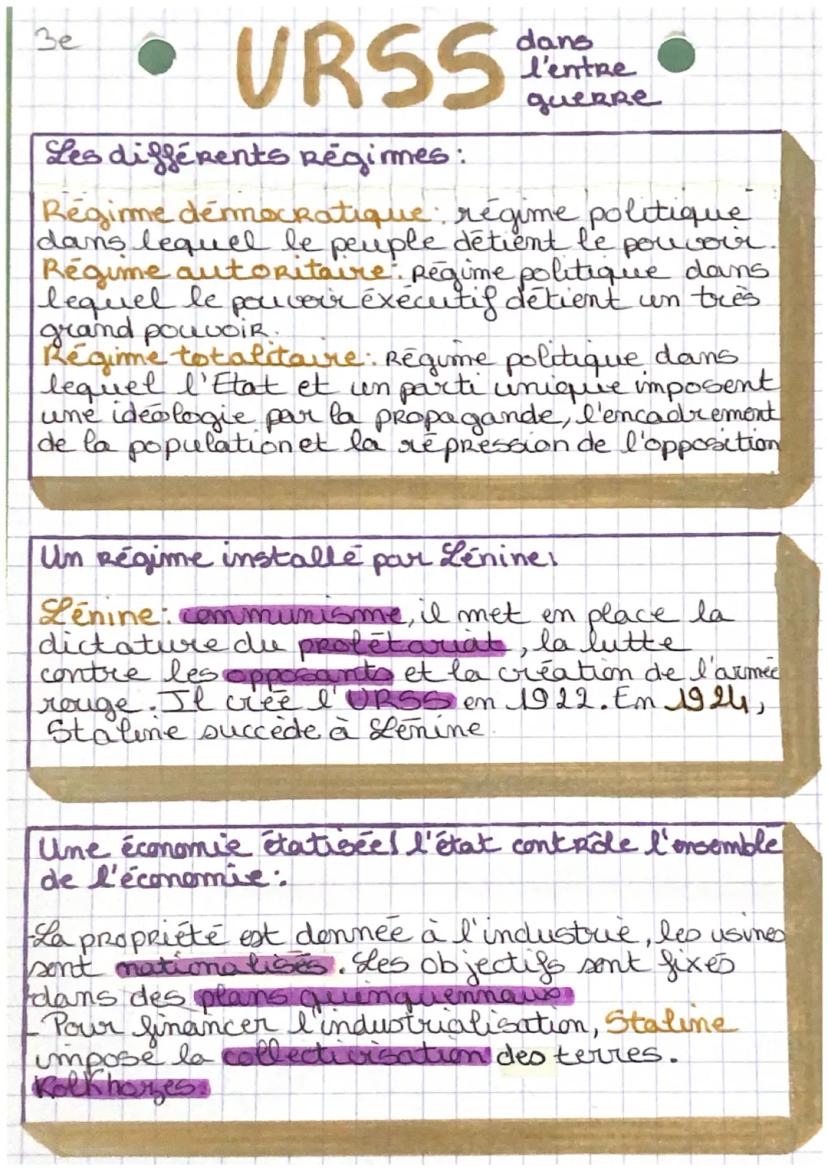 3e
URSS
dans
l'entre
guerre
Les différents régimes:
Régime démocratique: régime politique
dans lequel le peuple détient le pouvoir.
Régime autoritaire: régime politique dans
lequel le pouvoir éxécutif détient un très
grand pouvoir.
Régime totalitaire: Régime politique dans
lequel l'Etat et un parti unique imposent
une idéologie par la propagande, l'encadrement
de la population et la répression de l'opposition
Un régime installé par Lénine:
Lénine: communisme, il met en place la
dictature du prolétariat, la lutte
contre les opposants et la création de l'armée
rouge. Il crée l'URSS en 1922. En 1924,
Staline succède à Lénine.
Une économie étatisée/ l'état contrôle l'ensemble
de l'économie:
-La propriété est donnée à l'industrie, les usines
sont nationalisés. Les objectifs sont fixés
dans des plans quinquennaux
- Pour financer l'industrialisation, Staline
impose la collectivisation des terres.
Kolkhozes